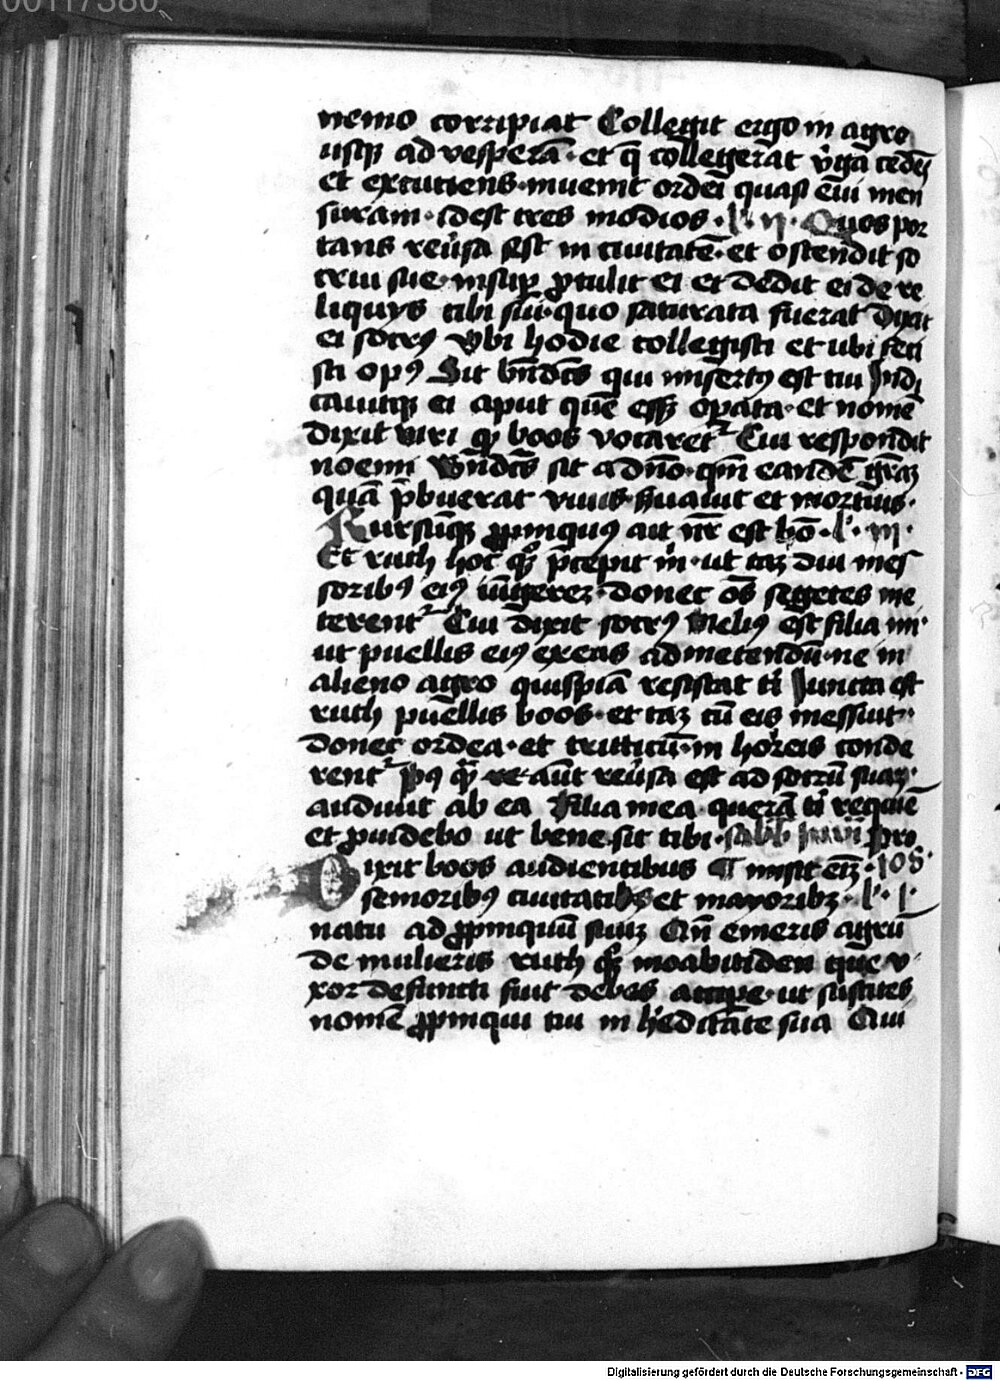 00117380
nemo corripiat Collegit ergo in agro
usqꝫ ad vesperā · et q̄ collegerat v̓ga cedēs
et excutiens · inuenit ordei quasi ēui men
suram · idest tres modios · l̓· ij · Quos por
tans reu̓sa est in ciuitatē · et ostendit so
crui sue · insup̄ ꝓtulit ei et dedit ei de re
liquijs cibi sui · quo saturata fuerat Dixit
ei socrꝰ Vbi hodie collegisti et ubi feci
sti opꝰ Sit bn̄dc̄s qui misertꝰ est tui Indi
cauitqꝫ ei aput quē esset oꝑata · et nomē
dixit viri qꝫ boos vocaret᷑ Cui respondit
noemi bn̄dc̄s sit a dn̄o · qm̄ eandē gr̄aꝫ
quā p̄buerat viuis · suauit et mortuis ·
Rursūqꝫ ꝓpinquꝰ ait nr̄ est hō · l̓· iij ·
Et ruth hoc qꝫ p̄cepit m̓ · ut taꝫ diu mes
soribꝰ eiꝰ iūgereꝫ · donec oēs segetes me
terent᷑ Cui dixit socrꝰ Meliꝰ est filia mi ·
ut puellis eiꝰ exeas ad metendū · ne in
alieno agro quispiā resistat ti̓ Iuncta est
ruth puellis boos · et taꝫ cū eis messuit ·
donec ordea · et triticū · in horreis conde
rent᷑ pꝰ q̄ re aūt reu̓sa est ad socrū suaꝫ ·
audiuit ab ea Filia mea · querā ti̓ requiē
et ꝓuidebo ut bene sit tibi · sabb Pro
Dixit boos audientibus ¶ misit eiꝫ · ios ·
semoribꝰ ciuitatis et mayoribꝫ · l̓· i ·
natu ad ꝓpinquū suuꝫ Qn̄ emeris agrū
de mulieris ruth qꝫ moabitiden quē v
xor defuncti fuit debes accipe · ut suscites
nomē ꝓpinqui tui in h̓editate sua Qui
Digitalisierung gefördert durch die Deutsche Forschungsgemeinschaft - DFG